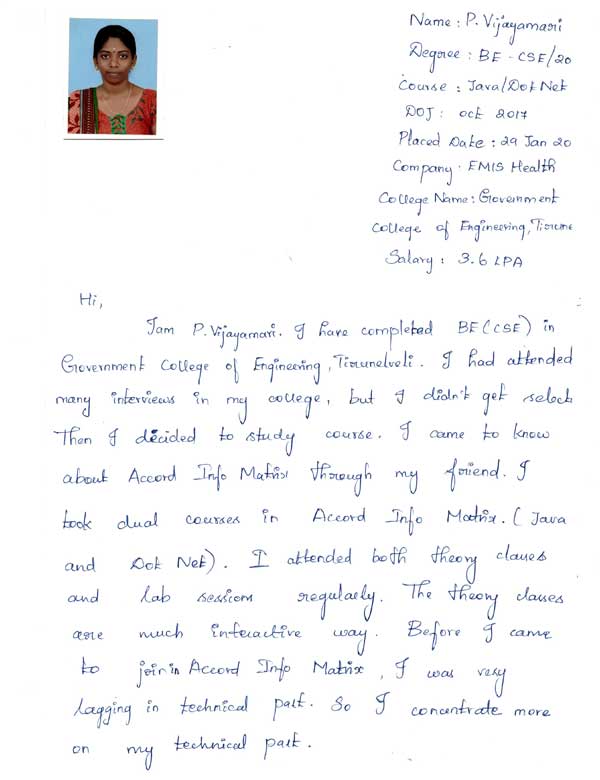 Name : P. Vijayamari
Degree : BE - CSE/20
Course : Java/Dot Net
DOJ : Oct 2017
Placed Date : 29 Jan 20
Company : EMIS Health
College Name : Government
College of Engineering, Tirune
Salary : 3.6 LPA
Hi,
I am P. Vijayamari. I have completed BE (CSE) in
Government College of Engineering, Tirunelveli. I had attended
many interviews in my college, but I didn't get select
Then I decided to study course. I came to know
about Accord Info Matrix through my friend. I
took dual courses in Accord Info Matrix. ( Java
and Dot Net). I attended both theory classes
and lab sessions regularly. The theory classes
are much interactive way. Before I came
to join in Accord Info Matrix, I was very
lagging in technical part. So I concentrate more
on my technical part.